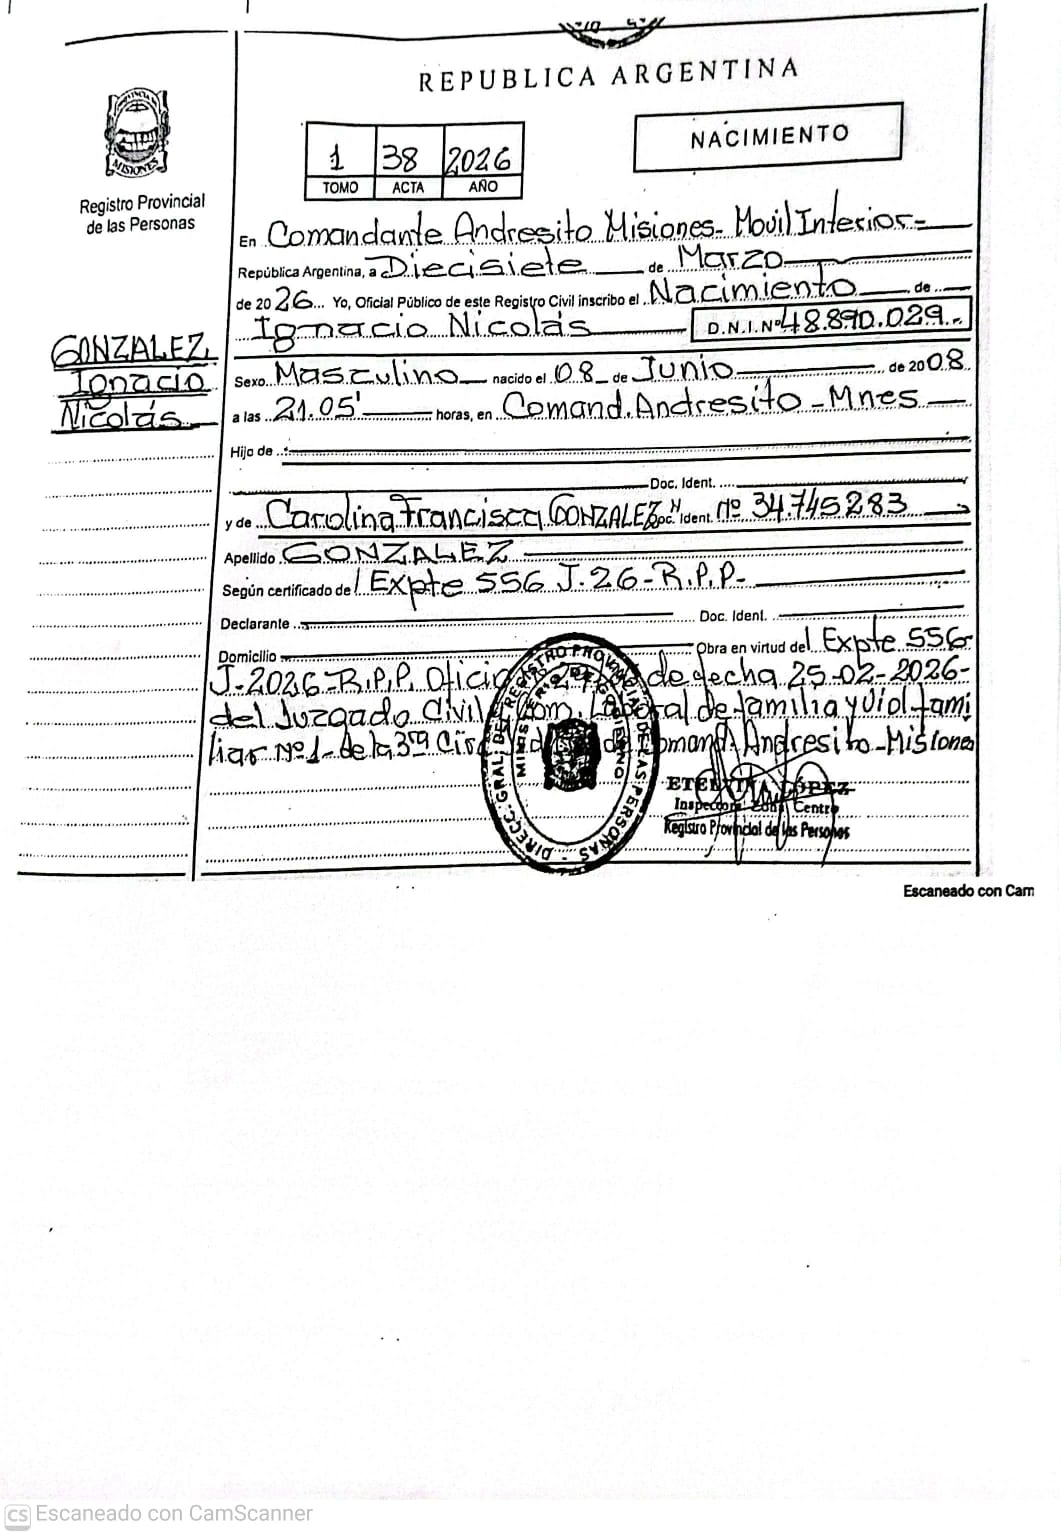 REPUBLICA ARGENTINA
PROVINCIA DE
MISIONES
Registro Provincial
de las Personas
1 38 2026
TOMO ACTA AÑO
NACIMIENTO
GONZALEZ,
Ignacio
Nicolás
En Comandante Andresito Misiones- Movil Interior-
República Argentina, a Diecisiete de Marzo
de 2026 Yo, Oficial Público de este Registro Civil inscribo el Nacimiento de
Ignacio Nicolás D.N.I. Nº 48.890.029.-
Sexo Masculino nacido el 08 de Junio de 2008
a las 21.05' horas, en Comand. Andresito - Mnes
Hijo de
Doc. Ident.
y de Carolina Francisca GONZALEZ Doc. Ident. Nº 34.745283
Apellido GONZALEZ
Según certificado de Expte 556 J.26-R.P.P-
Declarante Doc. Ident.
Domicilio Obra en virtud de Expte 556
J-2026-R.P.P. Oficio de fecha 25-02-2026-
del Juzgado Civil Com. Laboral de familia y Viol. fami
liar Nº1- de la 3ra Circ. Comand. Andresito - Misiones
DIRECC. GRAL. DEL REGISTRO PROVINCIAL DE LAS PERSONAS
MINISTERIO DE GOBIERNO
LÓPEZ
Inspectora Zona Centro
Registro Provincial de las Personas
Escaneado con Cam
CS Escaneado con CamScanner